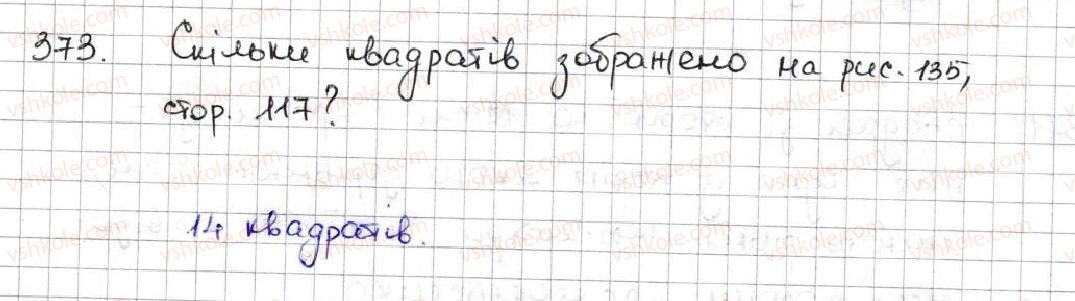 373. Скільки квадратів зображено на рис. 135,
стор. 117?
14 квадратів.